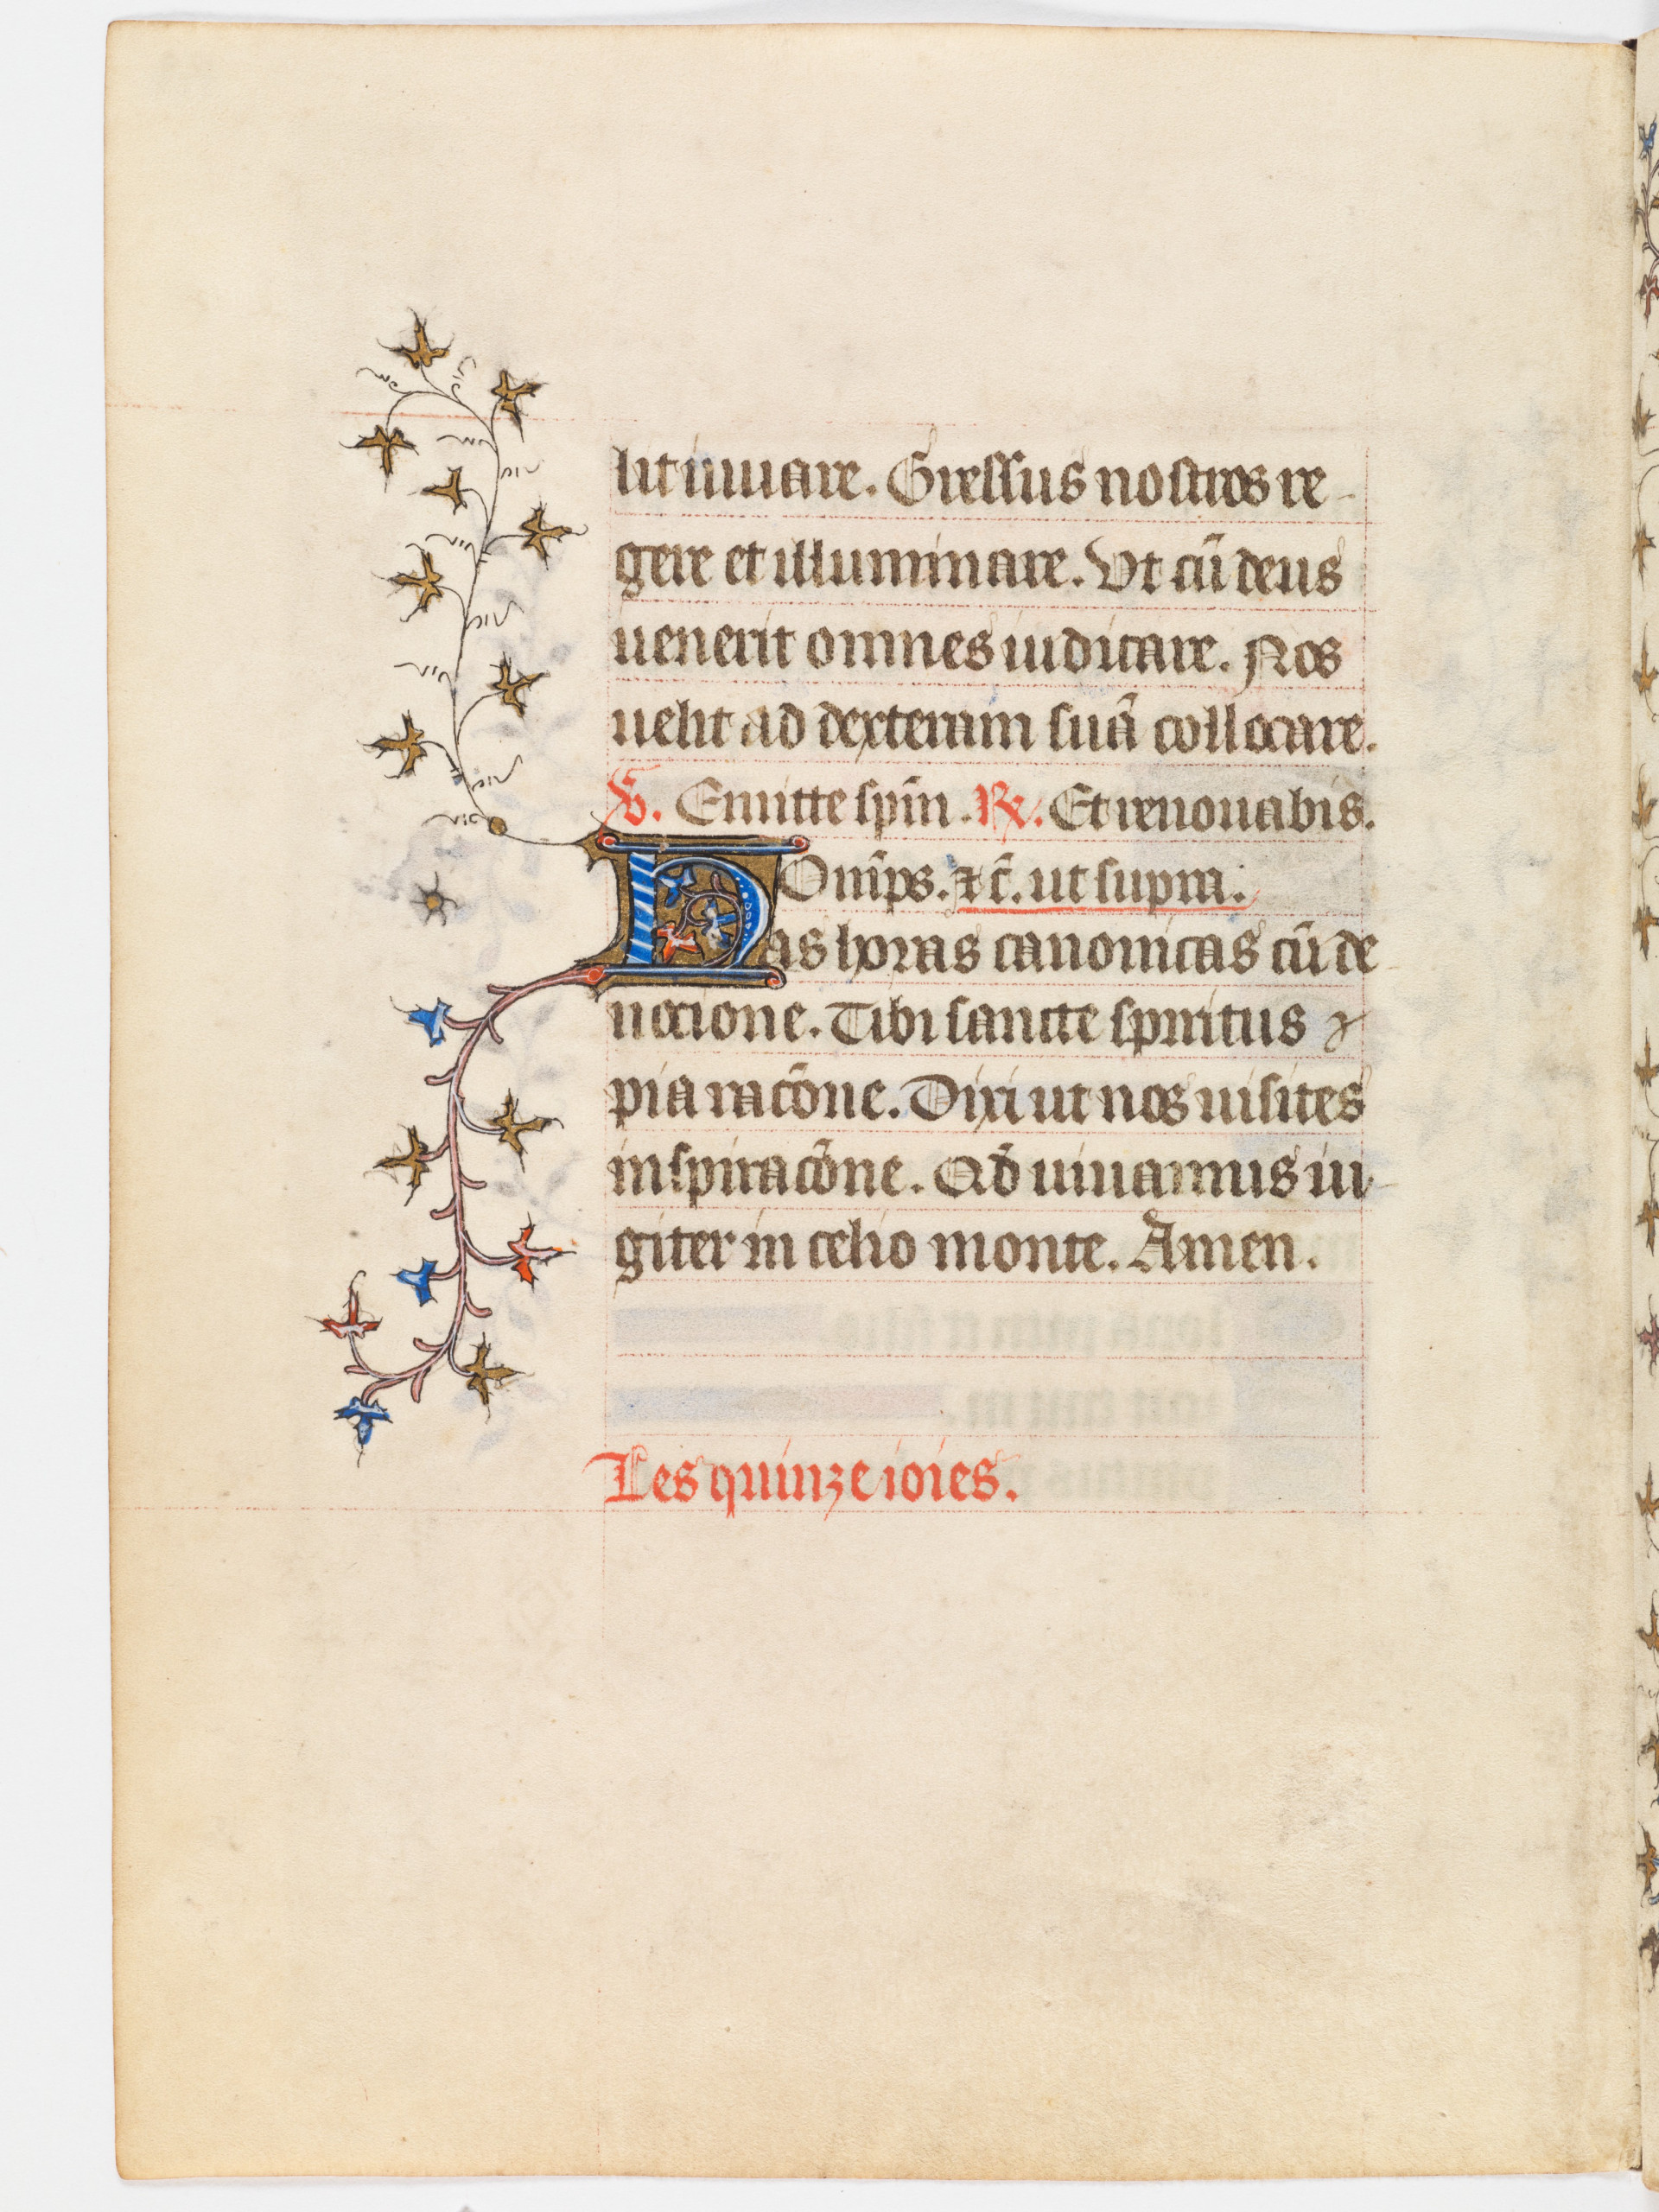 lit iuuare. Gressus nostros re-
gere et illuminare. Vt cū deus
uenerit omnes iudicare. Nos
uelit ad dexteram suā collocare.
℣. Emitte sp̄m. ℟. Et renouabis.
DOmīps. ⁊c̄. ut supra.
Has horas canonicas cū de-
uocione. Tibi sancte spiritus ⁊
pia racōne. Dixi ut nos uisites
inspiracōne. Qd̄ uiuamus iu-
giter in celio monte. Amen.
Les quinze ioies.